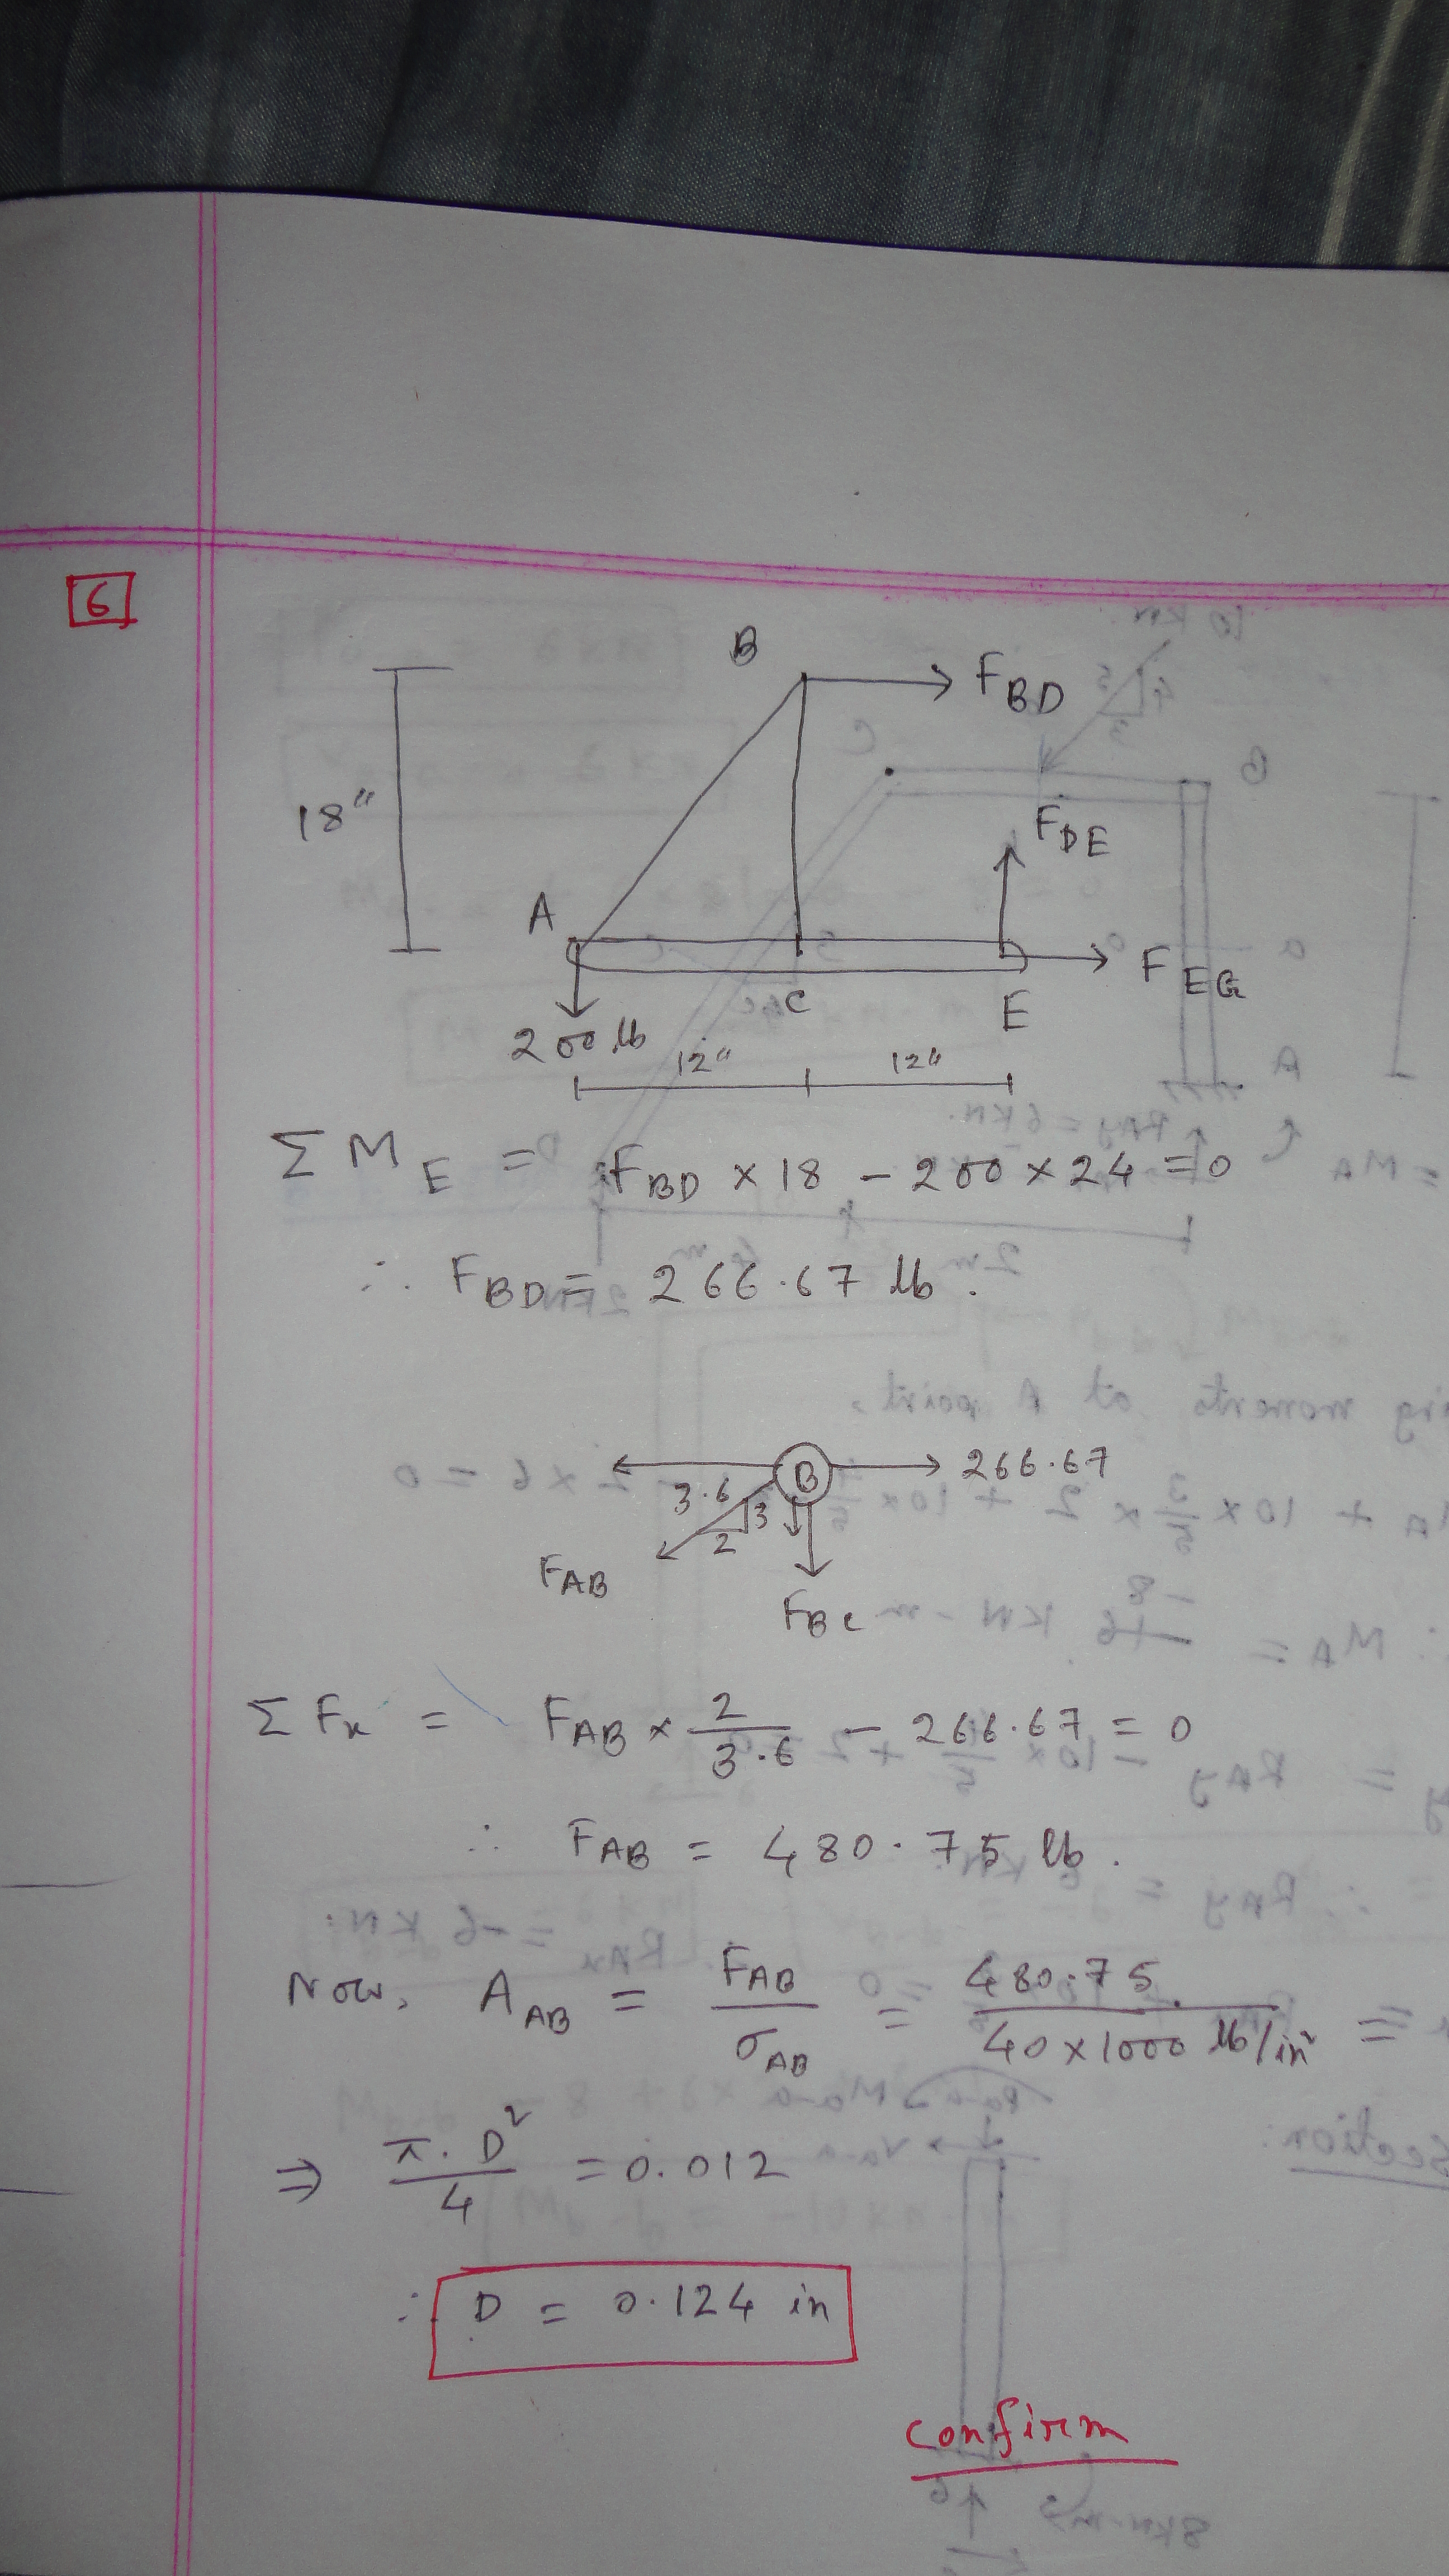 6
B
F_BD
18"
F_DE
A
F_EG
C
E
200 lb
12" 12"
Σ M_E = F_BD × 18 - 200 × 24 = 0
∴ F_BD = 266.67 lb.
B 266.67
3.6 3
2
F_AB
F_BC
Σ Fx = F_AB × 2/3.6 - 266.67 = 0
∴ F_AB = 480.75 lb.
Now, A_AB = F_AB/σ_AB = 480.75/40×1000 lb/in² =
⇒ π. D²/4 = 0.012
∴ D = 0.124 in
confirm